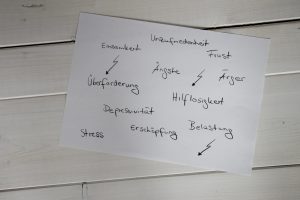 Unzufriedenheit
Einsamkeit
Frust
Ängste
Ärger
Überforderung
Hilflosigkeit
Depressivität
Erschöpfung
Belastung
Stress